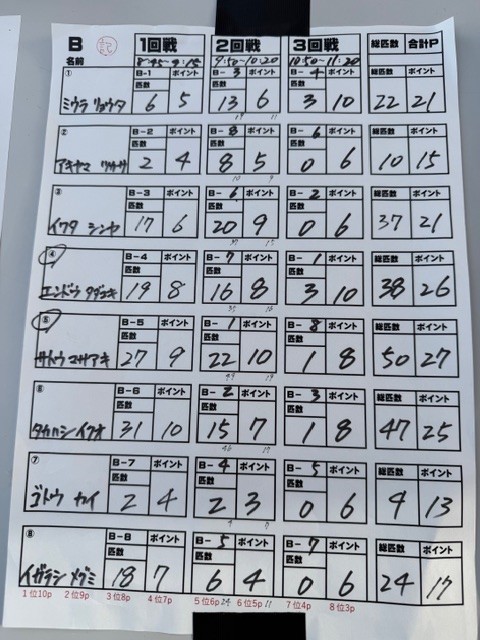 B 記 1回戦 2回戦 3回戦 総匹数 合計P
名前 8:45-9:15 9:50-10:20 10:50-11:20
① B-1 ポイント B-3 ポイント B-4 ポイント
匹数 匹数 匹数
ミウラ リョウタ 6 5 13 6 3 10 22 21
19 11
② B-2 ポイント B-8 ポイント B-6 ポイント 総匹数 ポイント
匹数 匹数 匹数
アキヤマ 2 4 8 5 0 6 10 15
10 9
③ B-3 ポイント B-6 ポイント B-2 ポイント 総匹数 ポイント
匹数 匹数 匹数
イワタ シンヤ 17 6 20 9 0 6 37 21
37 15
④ B-4 ポイント B-7 ポイント B-1 ポイント 総匹数 ポイント
匹数 匹数 匹数
エンドウ タダユキ 19 8 16 8 3 10 38 26
35 16
⑤ B-5 ポイント B-1 ポイント B-8 ポイント 総匹数 ポイント
匹数 匹数 匹数
サトウ マサアキ 27 9 22 10 1 8 50 27
49 19
⑥ B-6 ポイント B-2 ポイント B-3 ポイント 総匹数 ポイント
匹数 匹数 匹数
タカハシ イクオ 31 10 15 7 1 8 47 25
46 17
⑦ B-7 ポイント B-4 ポイント B-5 ポイント 総匹数 ポイント
匹数 匹数 匹数
ゴトウ カイ 2 4 2 3 0 6 4 13
4 7
⑧ B-8 ポイント B-5 ポイント B-7 ポイント 総匹数 ポイント
匹数 匹数 匹数
イガラシ メグミ 18 7 6 4 0 6 24 17
24 11
1位10p 2位9p 3位8p 4位7p 5位6p 6位5p 7位4p 8位3p